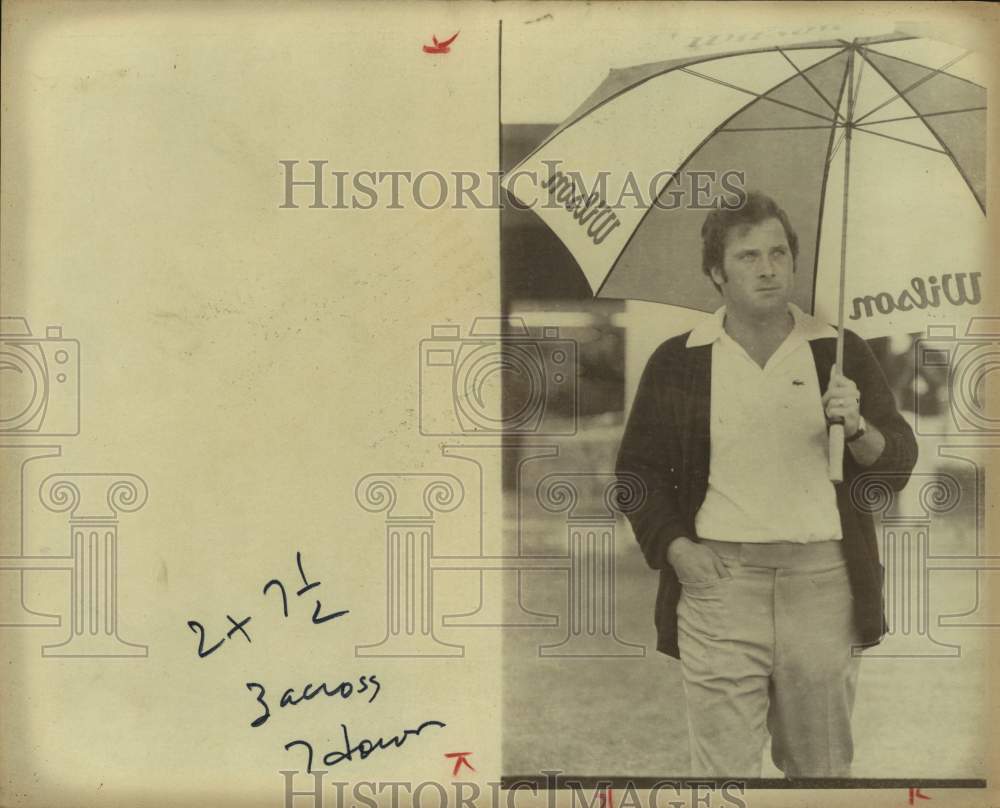 HISTORIC IMAGES
Wilson
Wilson
2 x 7 1/2
3 across
7 down
HISTORIC IMAGES